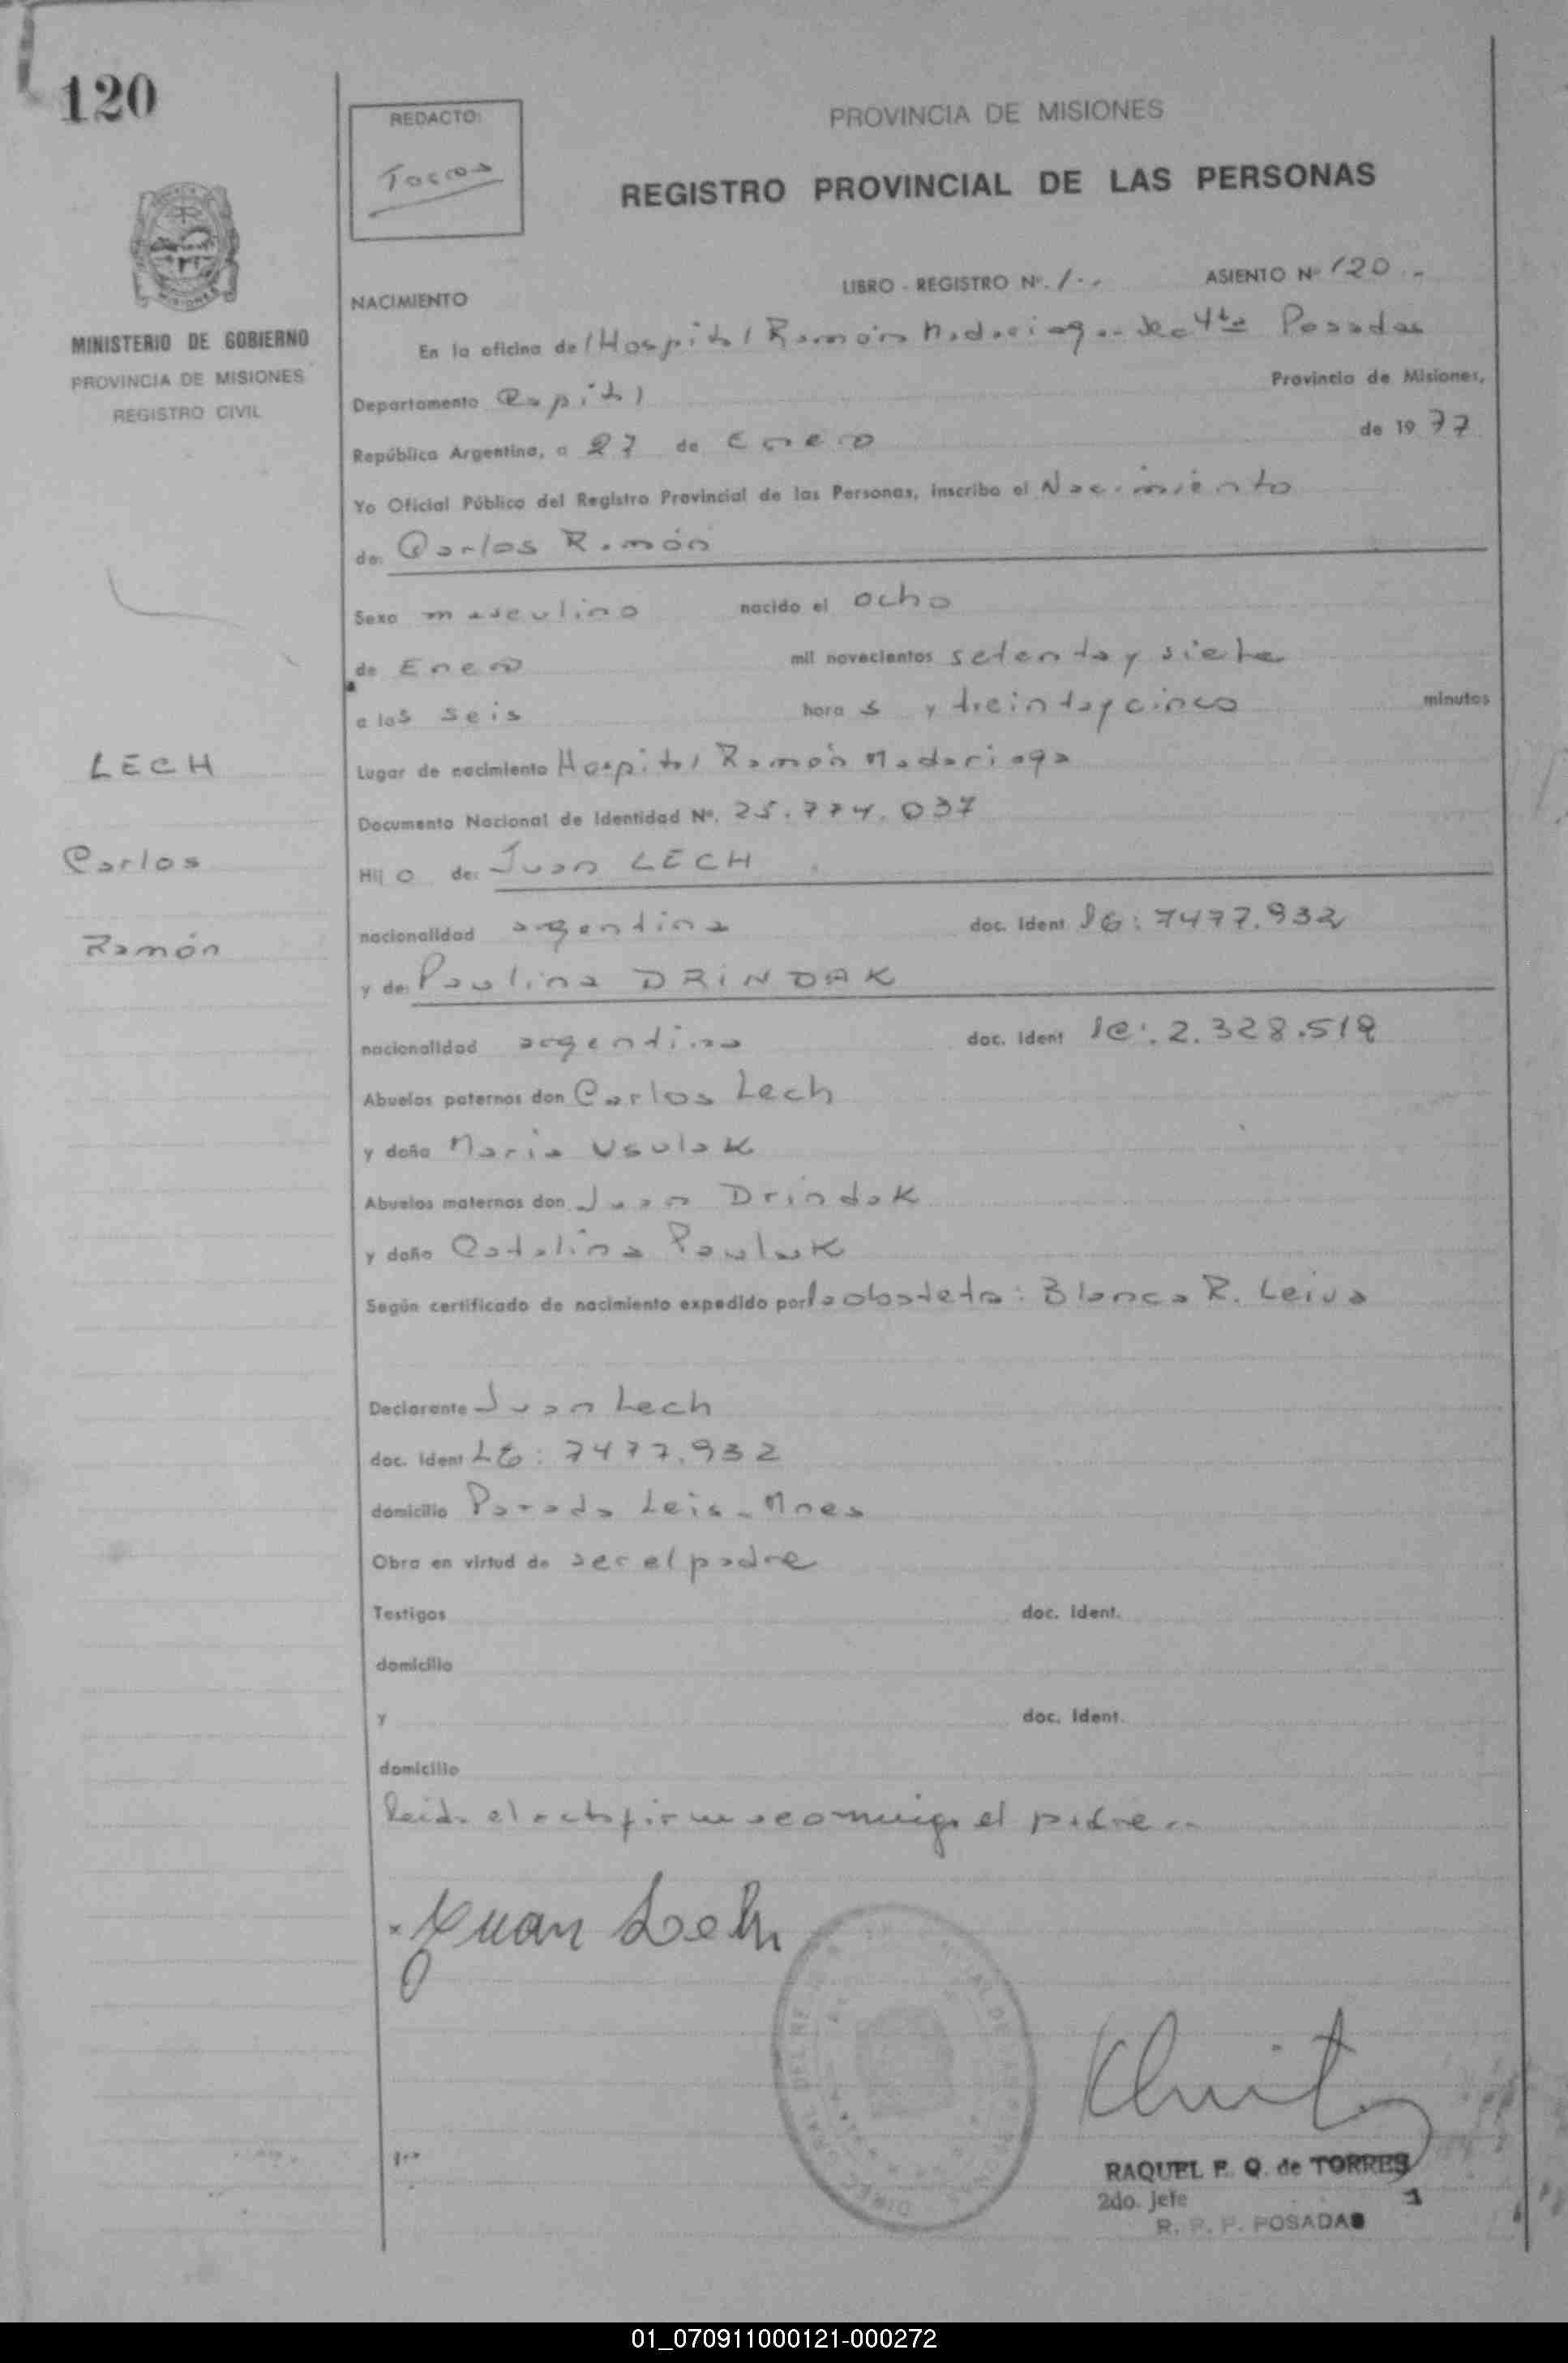 120
REDACTO:
Torres
PROVINCIA DE MISIONES
REGISTRO PROVINCIAL DE LAS PERSONAS
MINISTERIO DE GOBIERNO
PROVINCIA DE MISIONES
REGISTRO CIVIL
NACIMIENTO LIBRO - REGISTRO Nº. 1.- ASIENTO Nº 120.-
En la oficina del Hospital Ramón Madariaga - Sec 4ta Posadas
Departamento Capital Provincia de Misiones,
República Argentina, a 27 de Enero de 1977
Yo Oficial Público del Registro Provincial de las Personas, inscribo el Nacimiento
de: Carlos Ramón
Sexo masculino nacido el ocho
de Enero mil novecientos setenta y siete
a las seis horas y treinta y cinco minutos
Lugar de nacimiento Hospital Ramón Madariaga
Documento Nacional de Identidad Nº. 25.774.037
Hijo de: Juan LECH
nacionalidad argentina doc. Ident LE: 7477.932
y de: Paulina DRINDAK
nacionalidad argentina doc. Ident lC: 2.328.518
Abuelos paternos don Carlos Lech
y doña Maria Usulak
Abuelos maternos don Juan Drindak
y doña Catalina Pauluk
Según certificado de nacimiento expedido por la obsteta: Blanca R. Leiva
Declarante Juan Lech
doc. Ident LE: 7477.932
domicilio Parada Leis - Mnes
Obra en virtud de ser el padre
Testigos doc. Ident.
domicilio
y doc. Ident.
domicilio
Leida el acta firma conmigo el padre.-
LECH
Carlos
Ramón
x Juan Leh
RAQUEL F. Q. de TORRES
2do. Jefe
R. P. P. POSADAS
01_070911000121-000272